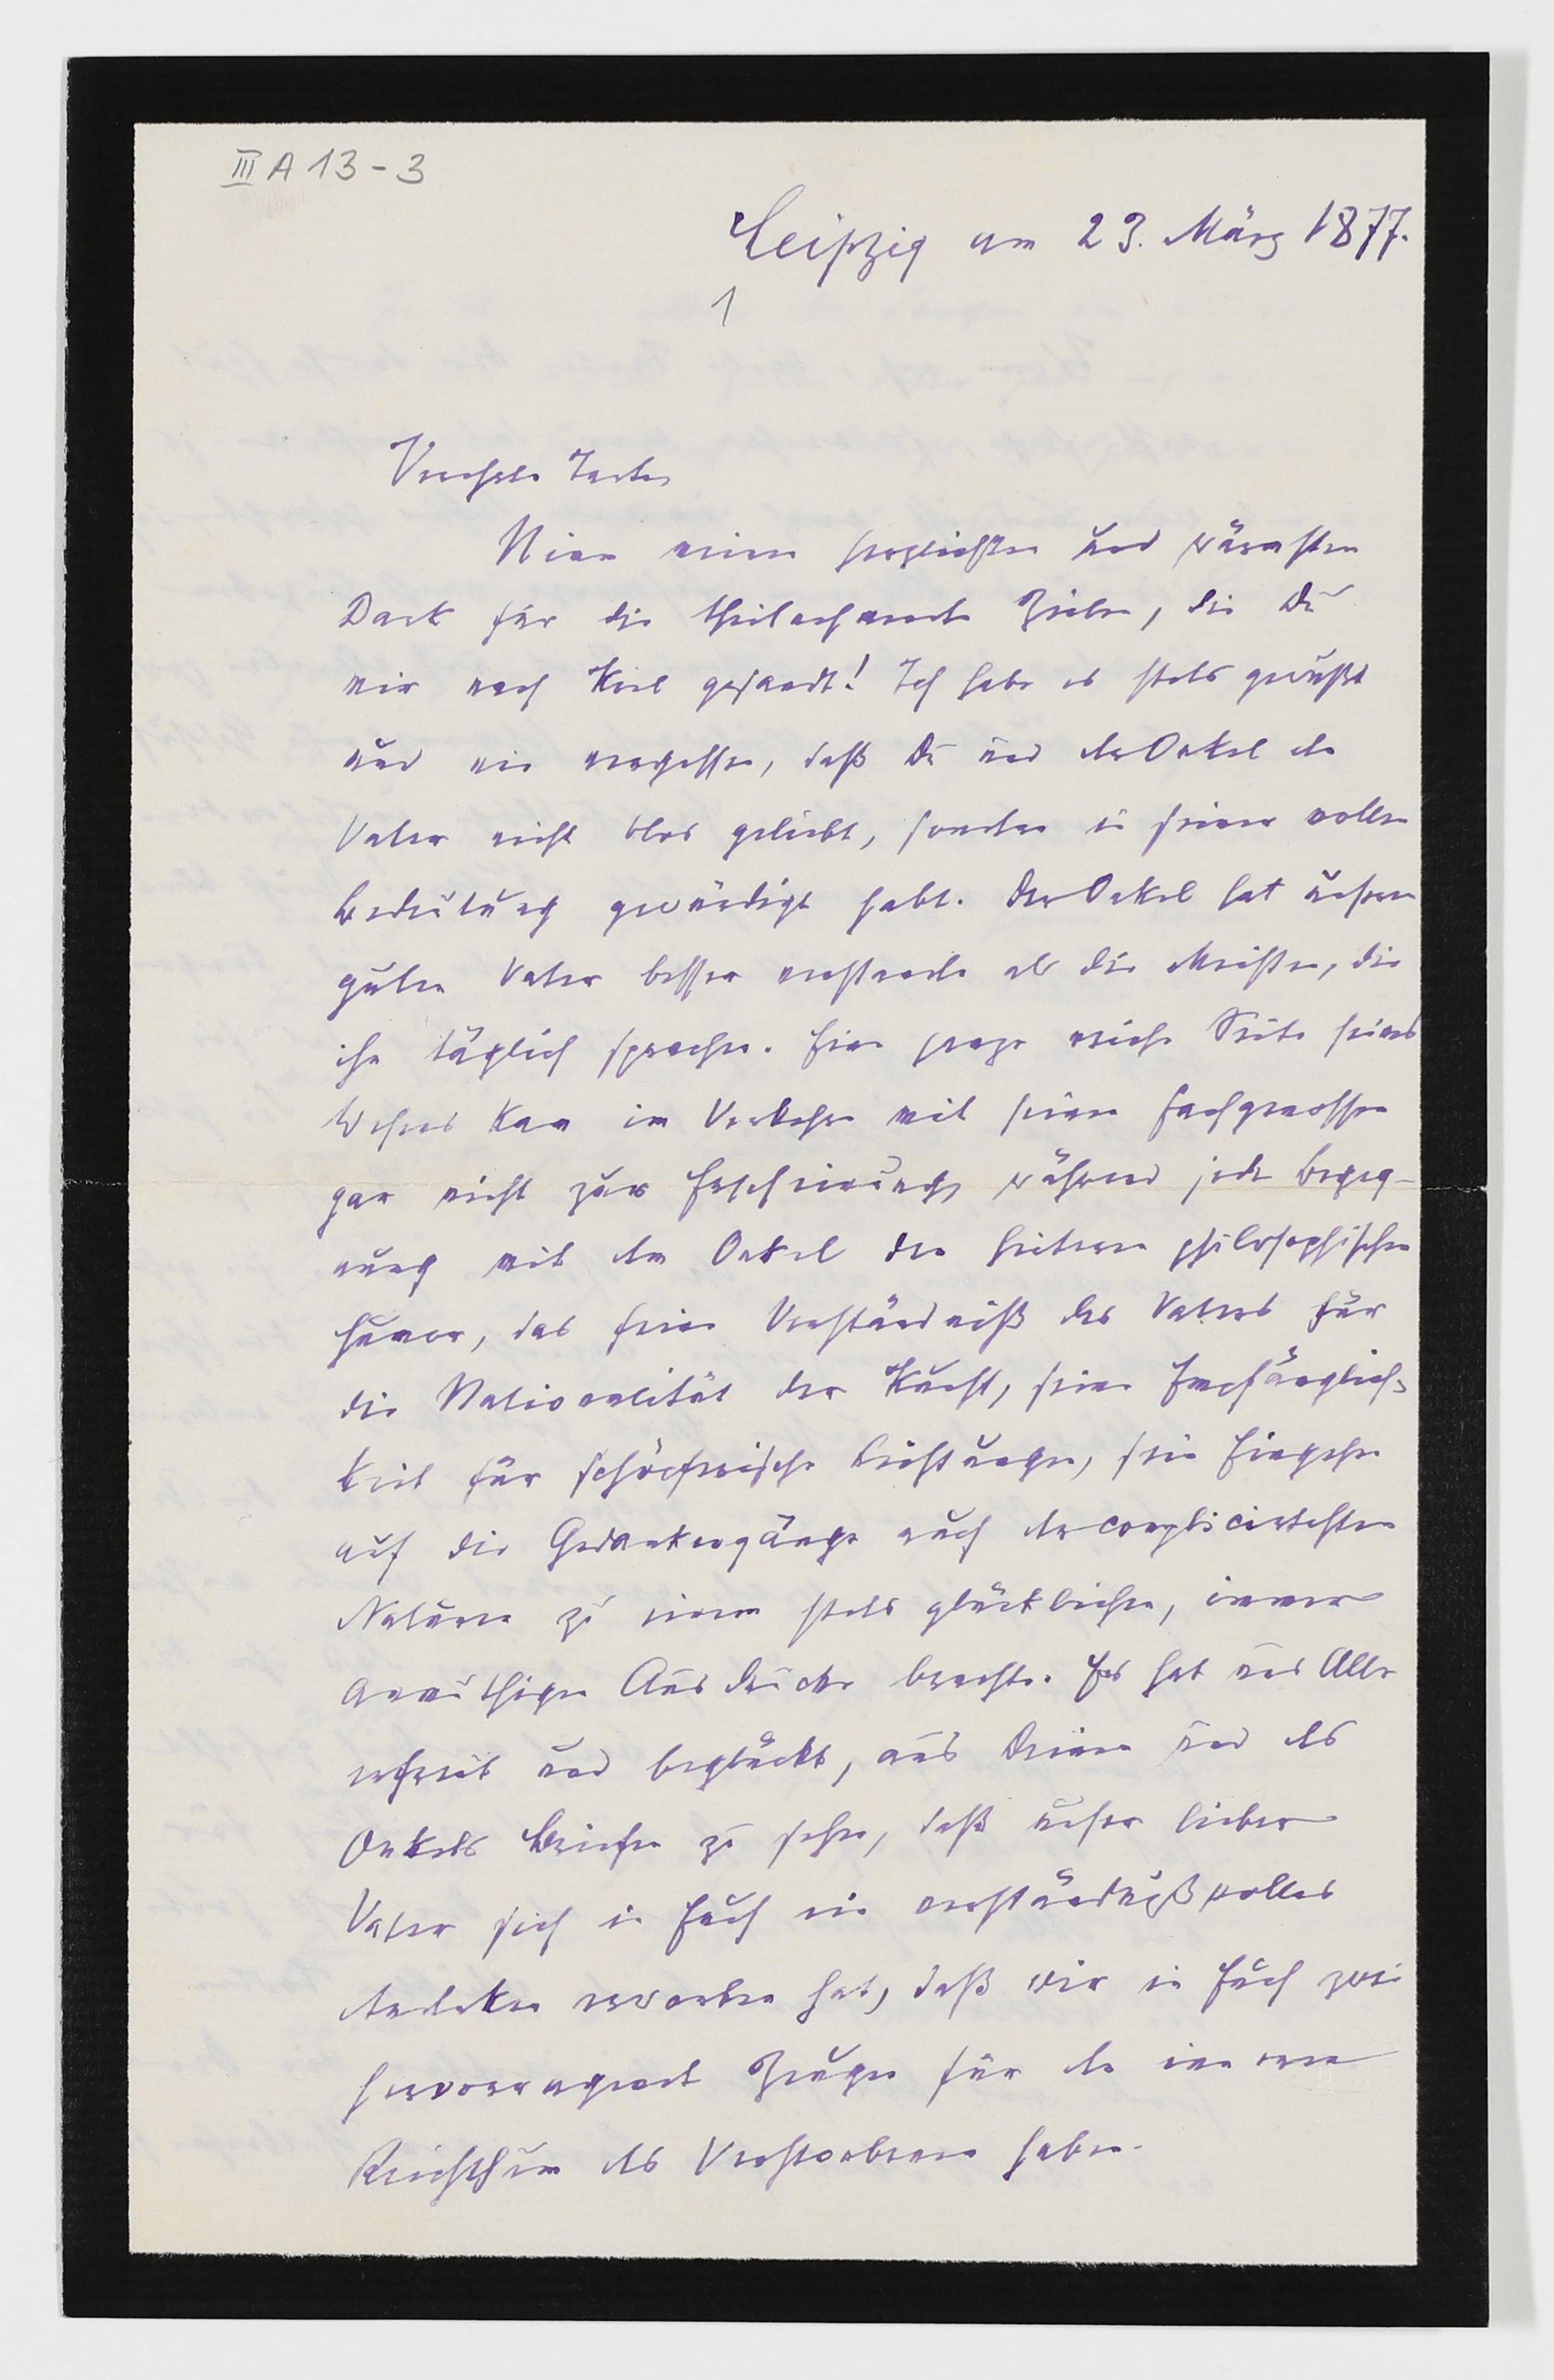 III A 13-3
Leipzig am 23. März 1877.
1
Verehrte Tante
Nimm meinen herzlichsten und wärmsten
Dank für die theilnehmenden Zeilen, die Du
mir nach Kiel gesandt! Ich habe es stets gewußt
und nie vergessen, daß Du und der Onkel den
Vater nicht blos geliebt, sondern in seiner vollen
Bedeutung gewürdigt habt. Der Onkel hat unseren
guten Vater besser verstanden als die Meisten, die
ihn täglich sprachen. Eine ganze reiche Seite seines
Wesens kam im Verkehre mit seinen Fachgenossen
gar nicht zur Erscheinung, während jede Begeg-
nung mit dem Onkel den heiteren philosophischen
Humor, das feine Verständniß des Vaters für
die Nationalität der Kunst, seine Empfänglich-
keit für schöpferische Richtungen, sein Eingehen
auf die Gedankengänge auch der complicirtesten
Naturen zu einem stets glücklichen, immer
anmuthigen Ausdrucke brachte. Es hat uns Alle
erfreut und beglückt, aus Deinen und des
Onkels Briefen zu sehen, daß unser lieber
Vater sich in Euch ein verständnißvolles
Andenken erworben hat, daß wir in Euch zwei
hervorragende Zeugen für den inneren
Reichthum des Verstorbenen haben.